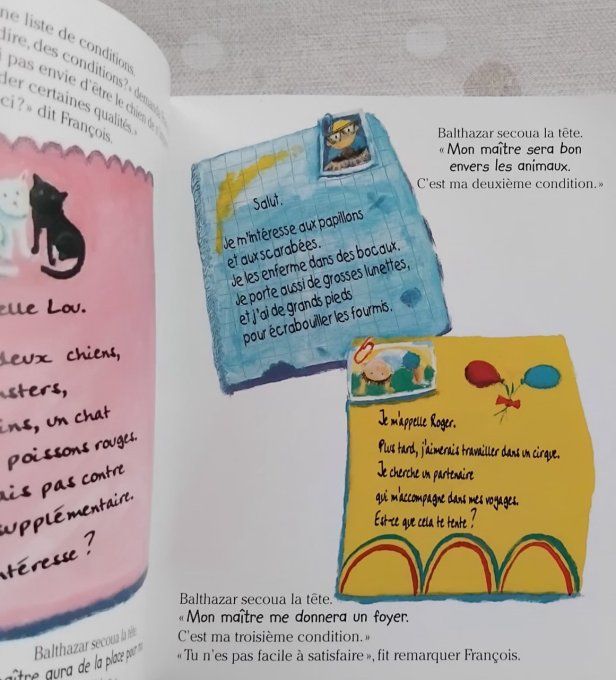 ne liste de conditions.
dire, des conditions?» demanda
pas envie d'être le chien de
der certaines qualités.»
ci?» dit François.
elle Lou.
deux chiens,
sters,
ins, un chat
poissons rouges.
ais pas contre
supplémentaire.
ntéresse?
Balthazar secoua la tête.
aître aura de la place pour
Balthazar secoua la tête.
«Mon maître sera bon
envers les animaux.
C'est ma deuxième condition.»
Salut.
Je m'intéresse aux papillons
et aux scarabées.
Je les enferme dans des bocaux.
Je porte aussi de grosses lunettes,
et j'ai de grands pieds
pour écrabouiller les fourmis.
Je m'appelle Roger.
Plus tard, j'aimerais travailler dans un cirque.
Je cherche un partenaire
qui m'accompagne dans mes voyages.
Est-ce que cela te tente?
Balthazar secoua la tête.
«Mon maître me donnera un foyer.
C'est ma troisième condition.»
«Tu n'es pas facile à satisfaire», fit remarquer François.